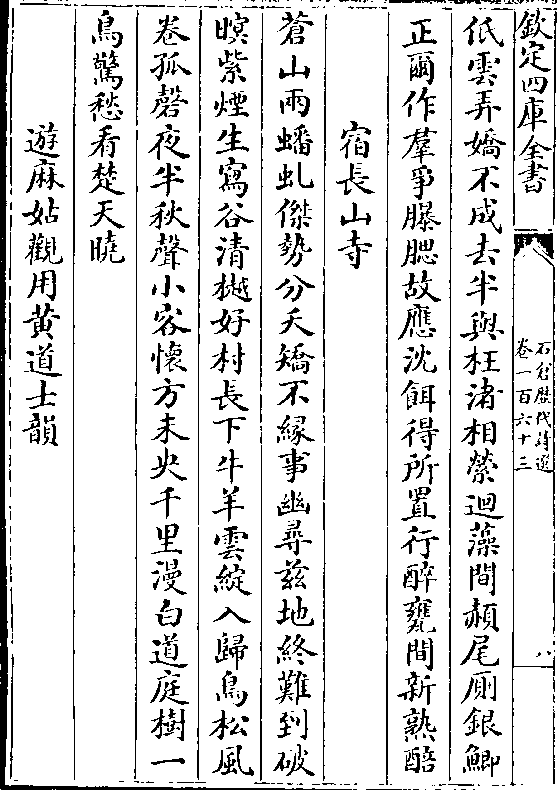 欽定四庫全書
石倉歷代詩選
卷一百六十三
八
低雲弄嬌不成去半與枉渚相縈迴藻間頳尾厠銀鯽
正爾作羣爭曝腮故應沈餌得所置行醉甕間新熟醅
宿長山寺
蒼山兩蟠虬傑勢分夭矯不緣事幽尋兹地終難到破
暝紫煙生窵谷清樾好村長下牛羊雲綻入歸鳥松風
卷孤磬夜半秋聲小客懷方未央千里漫白道庭樹一
鳥驚愁看楚天曉
遊麻姑觀用黄道士韻